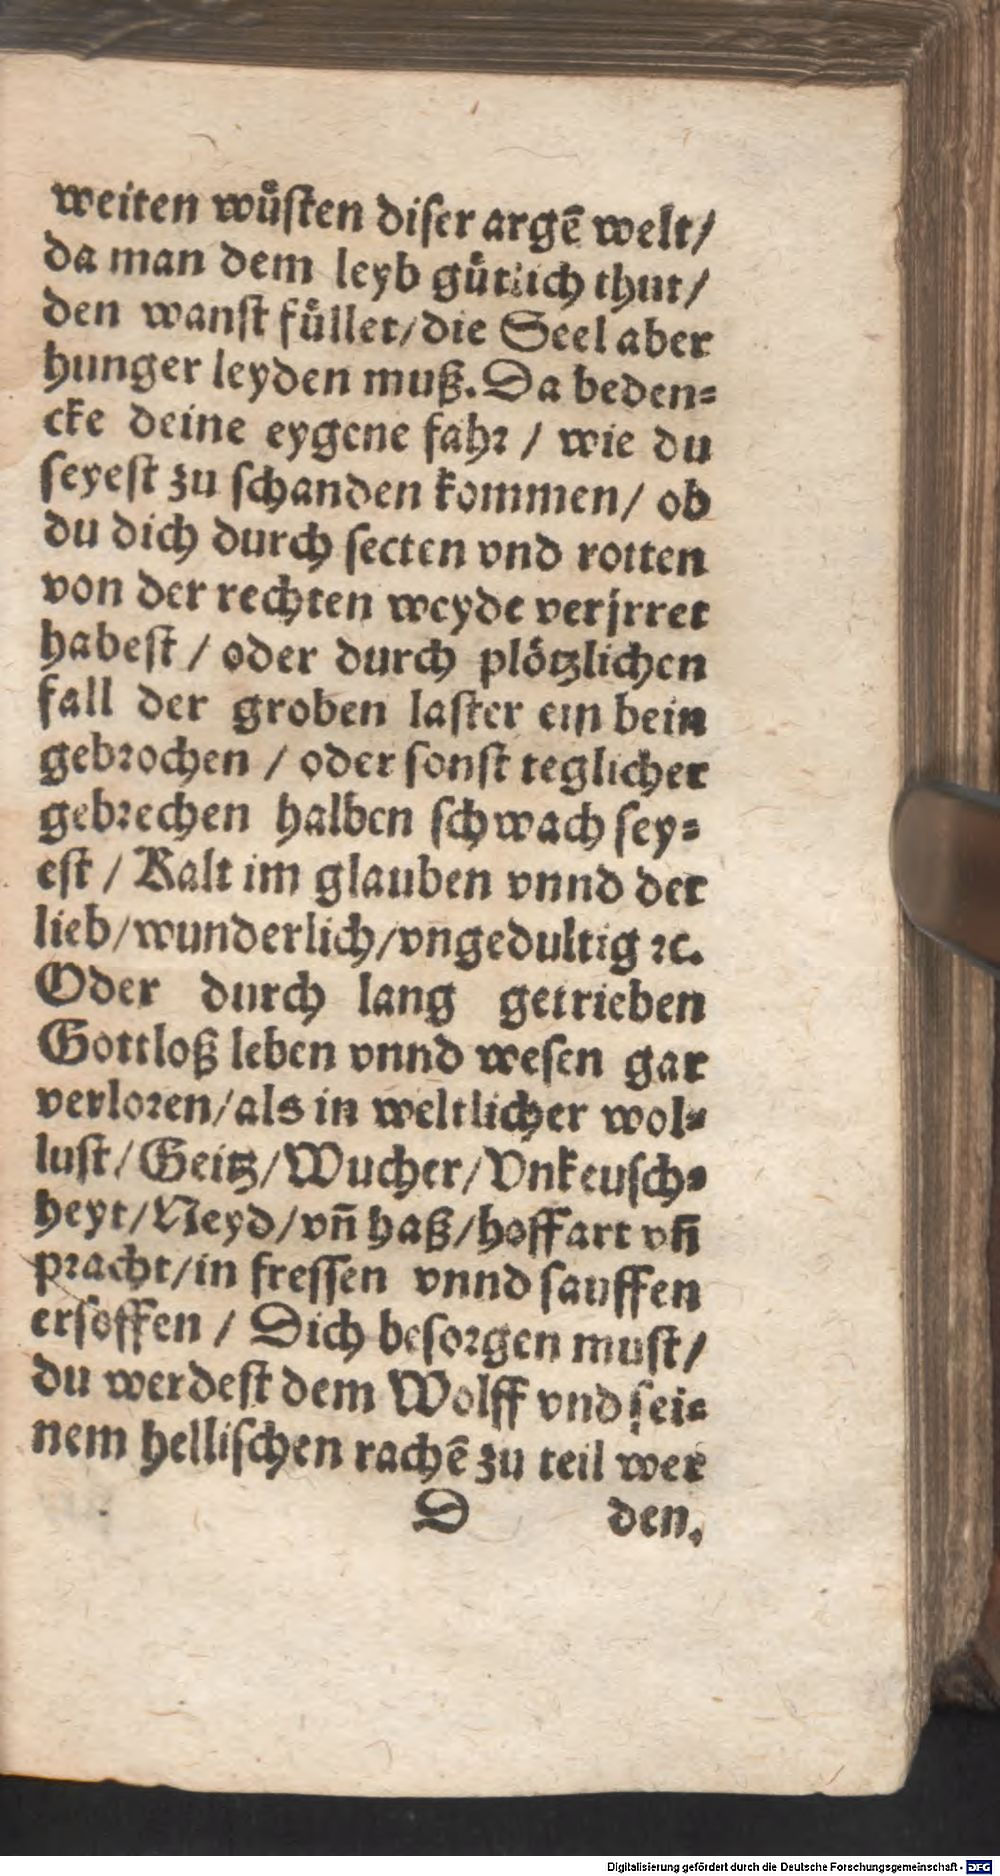 weiten wuͤſten diſer argē welt/
da man dem leyb guͤtlich thut/
den wanſt fuͤllet/die Seel aber
hunger leyden muß. Da beden⸗
cke deine eygene fahꝛ / wie du
ſeyeſt zu ſchanden kommen/ ob
du dich durch ſecten vnd rotten
von der rechten weyde verjrret
habeſt / oder durch ploͤtzlichen
fall der groben laſter ein bein
gebꝛochen / oder ſonſt teglicher
gebꝛechen halben ſchwach ſey⸗
eſt / Kalt im glauben vnnd der
lieb/wunderlich/vngedultig ꝛc.
Oder durch lang getrieben
Gottloß leben vnnd weſen gar
verloꝛen/als in weltlicher wol⸗
luſt/Geitz/Wucher/Vnkeuſch⸗
heyt/Neyd/vn̄ haß/hoffart vn̄
pꝛacht/in freſſen vnnd ſauffen
erſoffen / Dich beſoꝛgen muſt/
du werdeſt dem Wolff vnd ſei⸗
nem helliſchen rachē zu teil wer
D den.
Digitalisierung gefördert durch die Deutsche Forschungsgemeinschaft - DFG